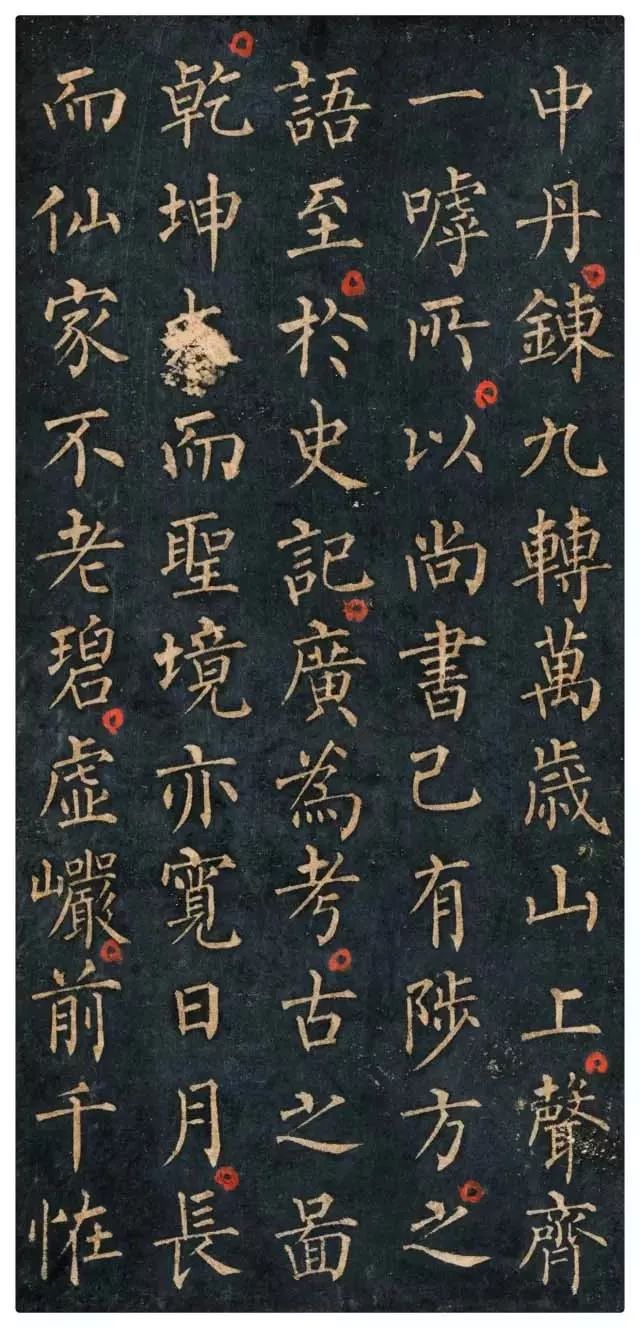 申丹鍊九轉萬歳山上聲齊
一嘑所以尚書已有陟方之
語至於史記廣為考古之啚
乾坤而聖境亦寬日月長
而仙家不老碧虛巗前千恠